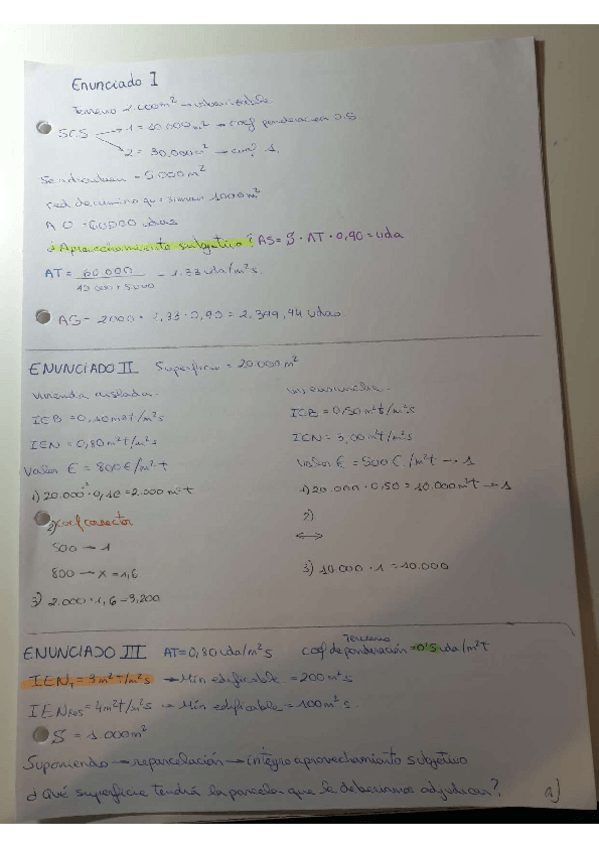 Enunciado I
Terreno 2.000m² → urbanizable
SGS → 1 = 10.000m² → coef ponderación 0.8
→ 2 = 30.000m² → coef 1.
5.000m²
red de camino que suman 1000m²
A O = 60.000 udas
¿Aprovechamiento subjetivo? AS = S · AT · 0,90 = uda
AT = 60.000 = 1.33 uda/m²s.
AS = 2000 · 1,33 · 0,90 = 2.399,94 udas
ENUNCIADO II Superficie = 20.000m²
Vivienda aislada.
ICB = 0,10m²t/m²s
IEN = 0,80m²t/m²s
Valor € = 800€/m²t
1) 20.000 · 0,10 = 2.000m²t
2) coef corrector
500 → 1
800 → x = 1,6
3) 2.000 · 1,6 = 3,200
ICB = 0,50m²t/m²s
ICN = 3,00m²t/m²s
Valor € = 500€/m²t → 1
1) 20.000 · 0,50 = 10.000m²t → 1
2)
3) 10.000 · 1 = 10.000
Terciario
ENUNCIADO III AT = 0,80 uda/m²s coef de ponderación = 0'5 uda/m²t
→ Mín edificable = 200m²s
→ Mín edificable = 100m²s.
S = 1.000m²
Suponiendo → reparcelación → íntegro aprovechamiento subjetivo
¿Qué superficie tendrá la parcela que le deberíamos adjudicar? a)